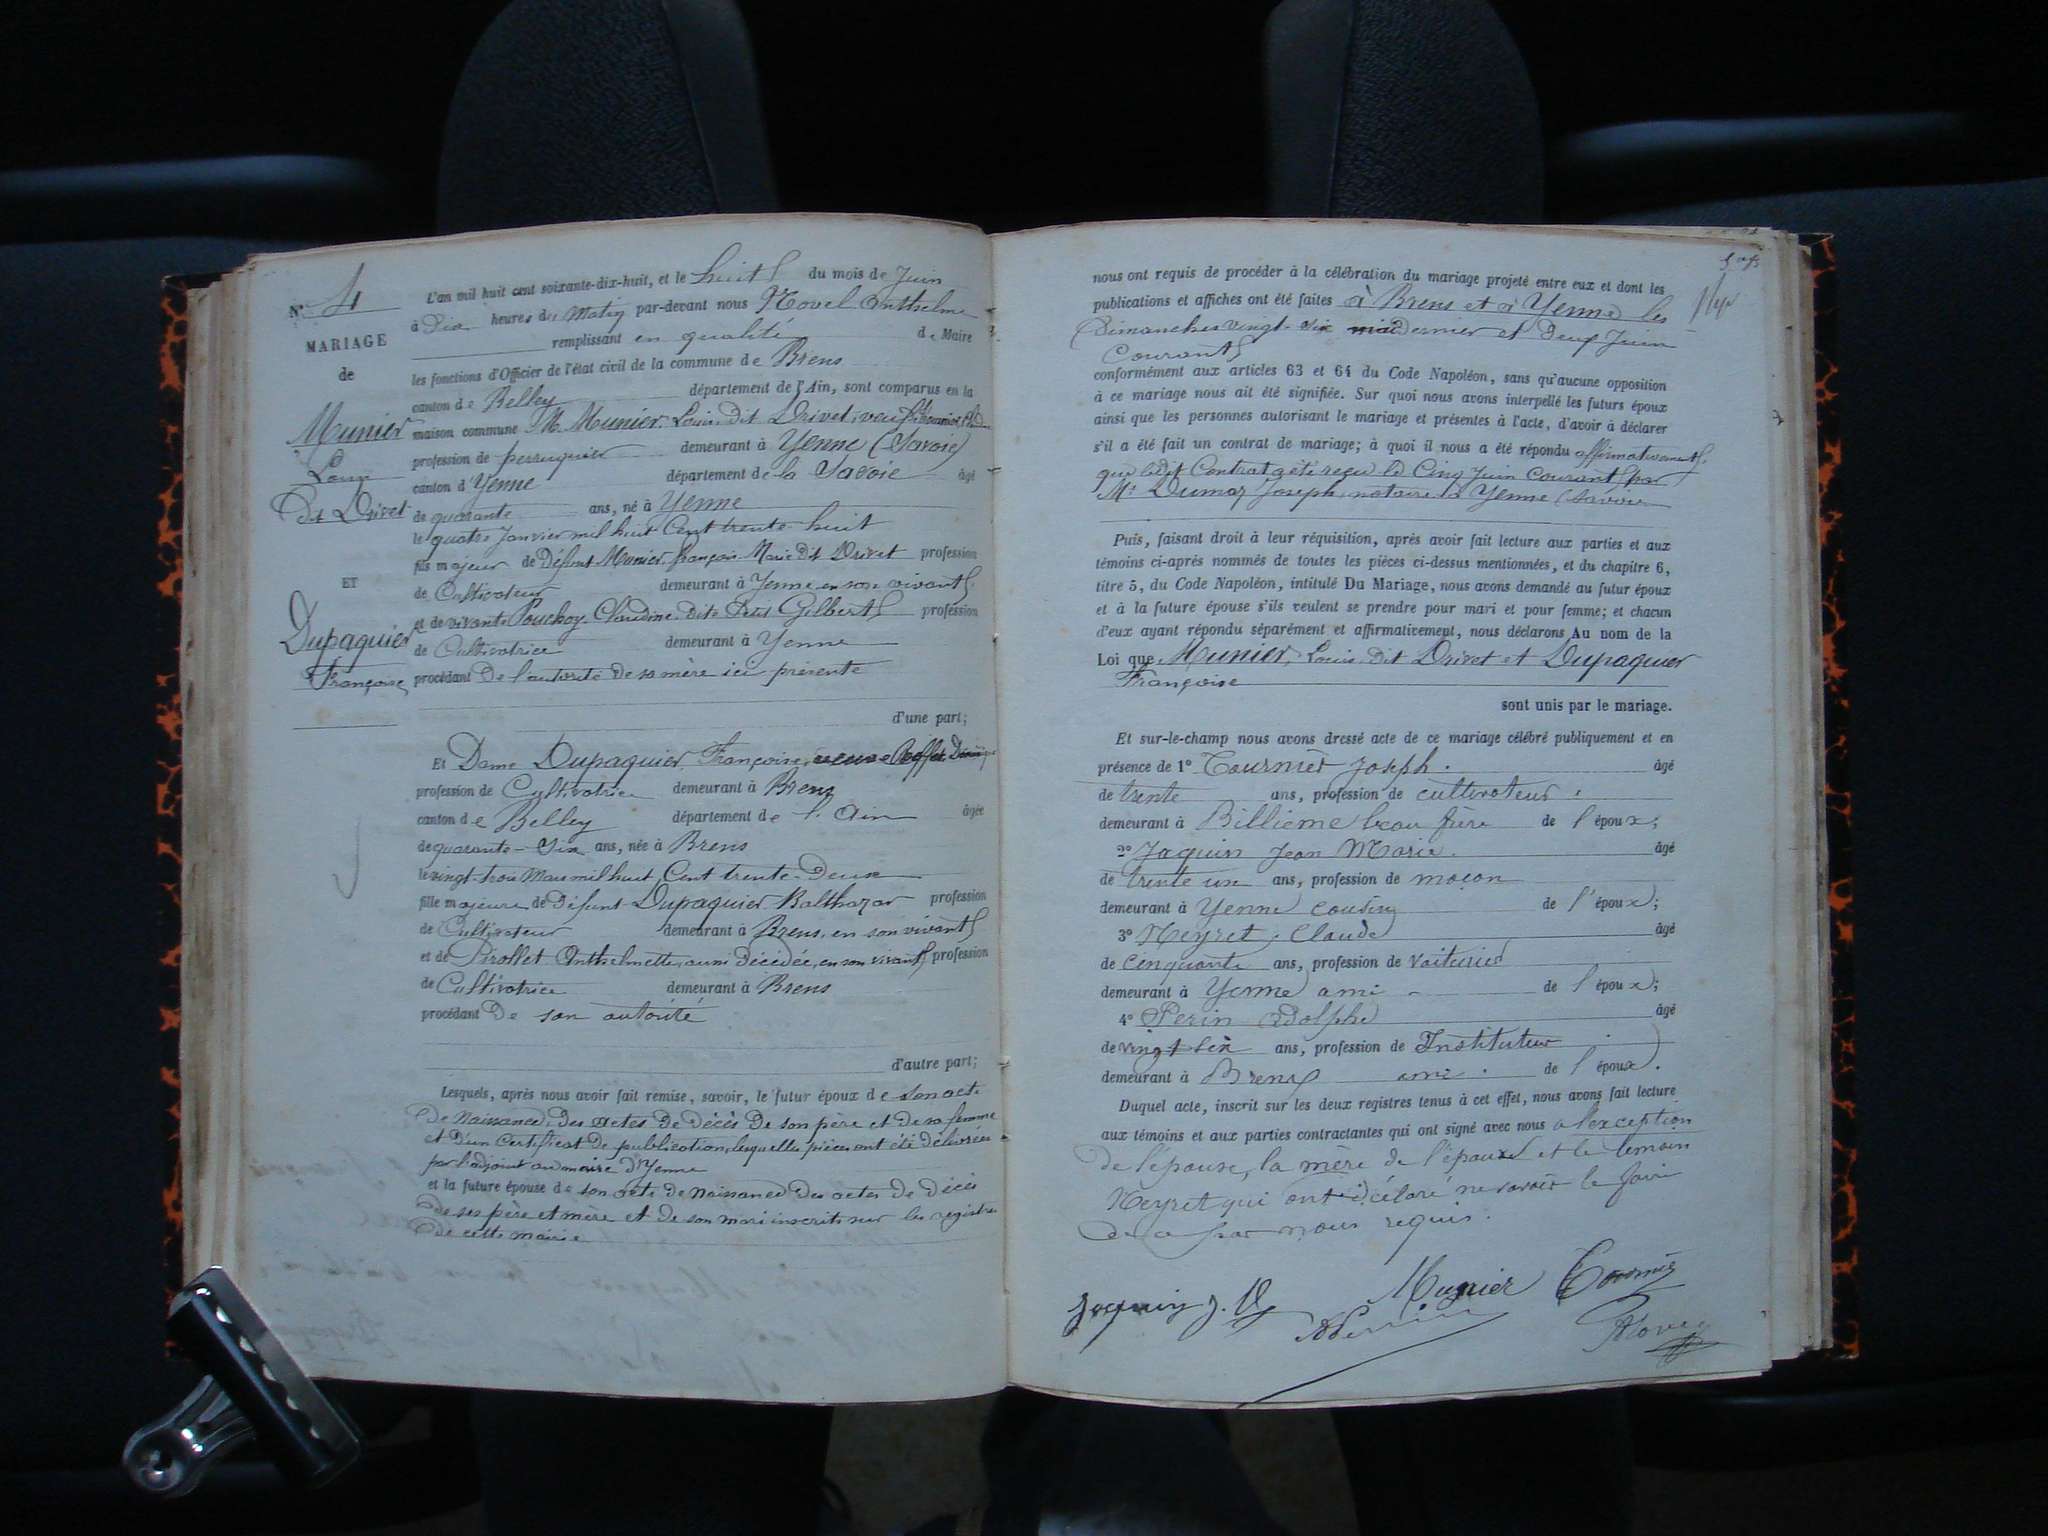 N° 4
MARIAGE
de
Munier
Louis
dit Drivet
ET
Dupaquier
Françoise
L'an mil huit cent soixante-dix-huit, et le huit du mois de Juin
à Dix heures du Matin par-devant nous Novel Anthelme
remplissant en qualité de Maire
les fonctions d'Officier de l'état civil de la commune de Brens
canton de Belley département de l'Ain, sont comparus en la
maison commune M. Munier, Louis, dit Drivet, veuf
profession de perruquier demeurant à Yenne (Savoie)
canton d'Yenne département de la Savoie âgé
de quarante ans, né à Yenne
le quatre Janvier mil huit Cent trente-huit
fils majeur de Défunt Munier, françois-Marie dit Drivet profession
de Cultivateur demeurant à Yenne, en son vivant
et de vivante Pouchoy Claudine, dite Petit Gilbert profession
de Cultivatrice demeurant à Yenne
procédant De l'autorité de sa mère ici présente
d'une part;
Et Dame Dupaquier, Françoise, veuve
profession de Cultivatrice demeurant à Brens
canton de Belley département de l'Ain âgée
de quarante-six ans, née à Brens
le vingt-trois Mars mil huit Cent trente-Deux
fille majeure de Défunt Dupaquier Balthazar profession
de Cultivateur demeurant à Brens, en son vivant
et de Pirollet Anthelmette, aussi Décédée, en son vivant profession
de Cultivatrice demeurant à Brens
procédant De son autorité
d'autre part;
Lesquels, après nous avoir fait remise, savoir, le futur époux de son acte
de Naissance, des actes de décès De son père et de sa femme
et d'un certificat de publication, lesquelles pièces ont été délivrées
par l'adjoint au maire d'Yenne
et la future épouse de son acte de Naissance des actes de décès
de ses père et mère et de son mari inscrits sur les registres
de cette mairie
nous ont requis de procéder à la célébration du mariage projeté entre eux et dont les
publications et affiches ont été faites à Brens et à Yenne les
Dimanches vingt-six mai dernier et deux Juin
Courant
conformément aux articles 63 et 64 du Code Napoléon, sans qu'aucune opposition
à ce mariage nous ait été signifiée. Sur quoi nous avons interpellé les futurs époux
ainsi que les personnes autorisant le mariage et présentes à l'acte, d'avoir à déclarer
s'il a été fait un contrat de mariage; à quoi il nous a été répondu affirmativement
que ledit Contrat a été reçu le Cinq Juin courant par
Me Dumaz Joseph, notaire à Yenne (Savoie
Puis, faisant droit à leur réquisition, après avoir fait lecture aux parties et aux
témoins ci-après nommés de toutes les pièces ci-dessus mentionnées, et du chapitre 6,
titre 5, du Code Napoléon, intitulé Du Mariage, nous avons demandé au futur époux
et à la future épouse s'ils veulent se prendre pour mari et pour femme; et chacun
d'eux ayant répondu séparément et affirmativement, nous déclarons Au nom de la
Loi que Munier, Louis, dit Drivet et Dupaquier
Françoise
sont unis par le mariage.
Et sur-le-champ nous avons dressé acte de ce mariage célébré publiquement et en
présence de 1° Tournier Joseph. âgé
de trente ans, profession de cultivateur
demeurant à Billième beau frère de l'époux;
2° Jaquin Jean Marie. âgé
de trente un ans, profession de maçon
demeurant à Yenne cousin de l'époux;
3° Neyret, Claude âgé
de cinquante ans, profession de voiturier
demeurant à Yenne ami de l'époux;
4° Perin Adolphe âgé
de vingt six ans, profession de Instituteur
demeurant à Brens ami de l'époux.
Duquel acte, inscrit sur les deux registres tenus à cet effet, nous avons fait lecture
aux témoins et aux parties contractantes qui ont signé avec nous à l'exception
de l'épouse, la mère de l'époux et le témoin
Neyret qui ont déclaré ne savoir le faire
de ce par nous requis.
Jaquin J. M
Munier
Tournier
APerrin
Novel